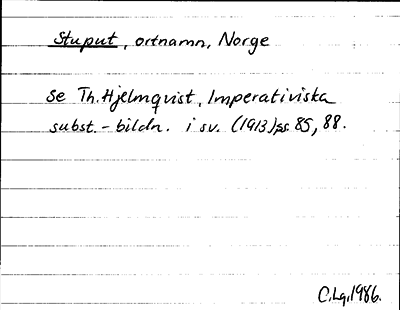 Stuput, ortnamn, Norge
Se Th. Hjelmqvist, Imperativiska
subst.-bildn. i sv. (1913) ss. 85, 88.
C.Lg. 1986.